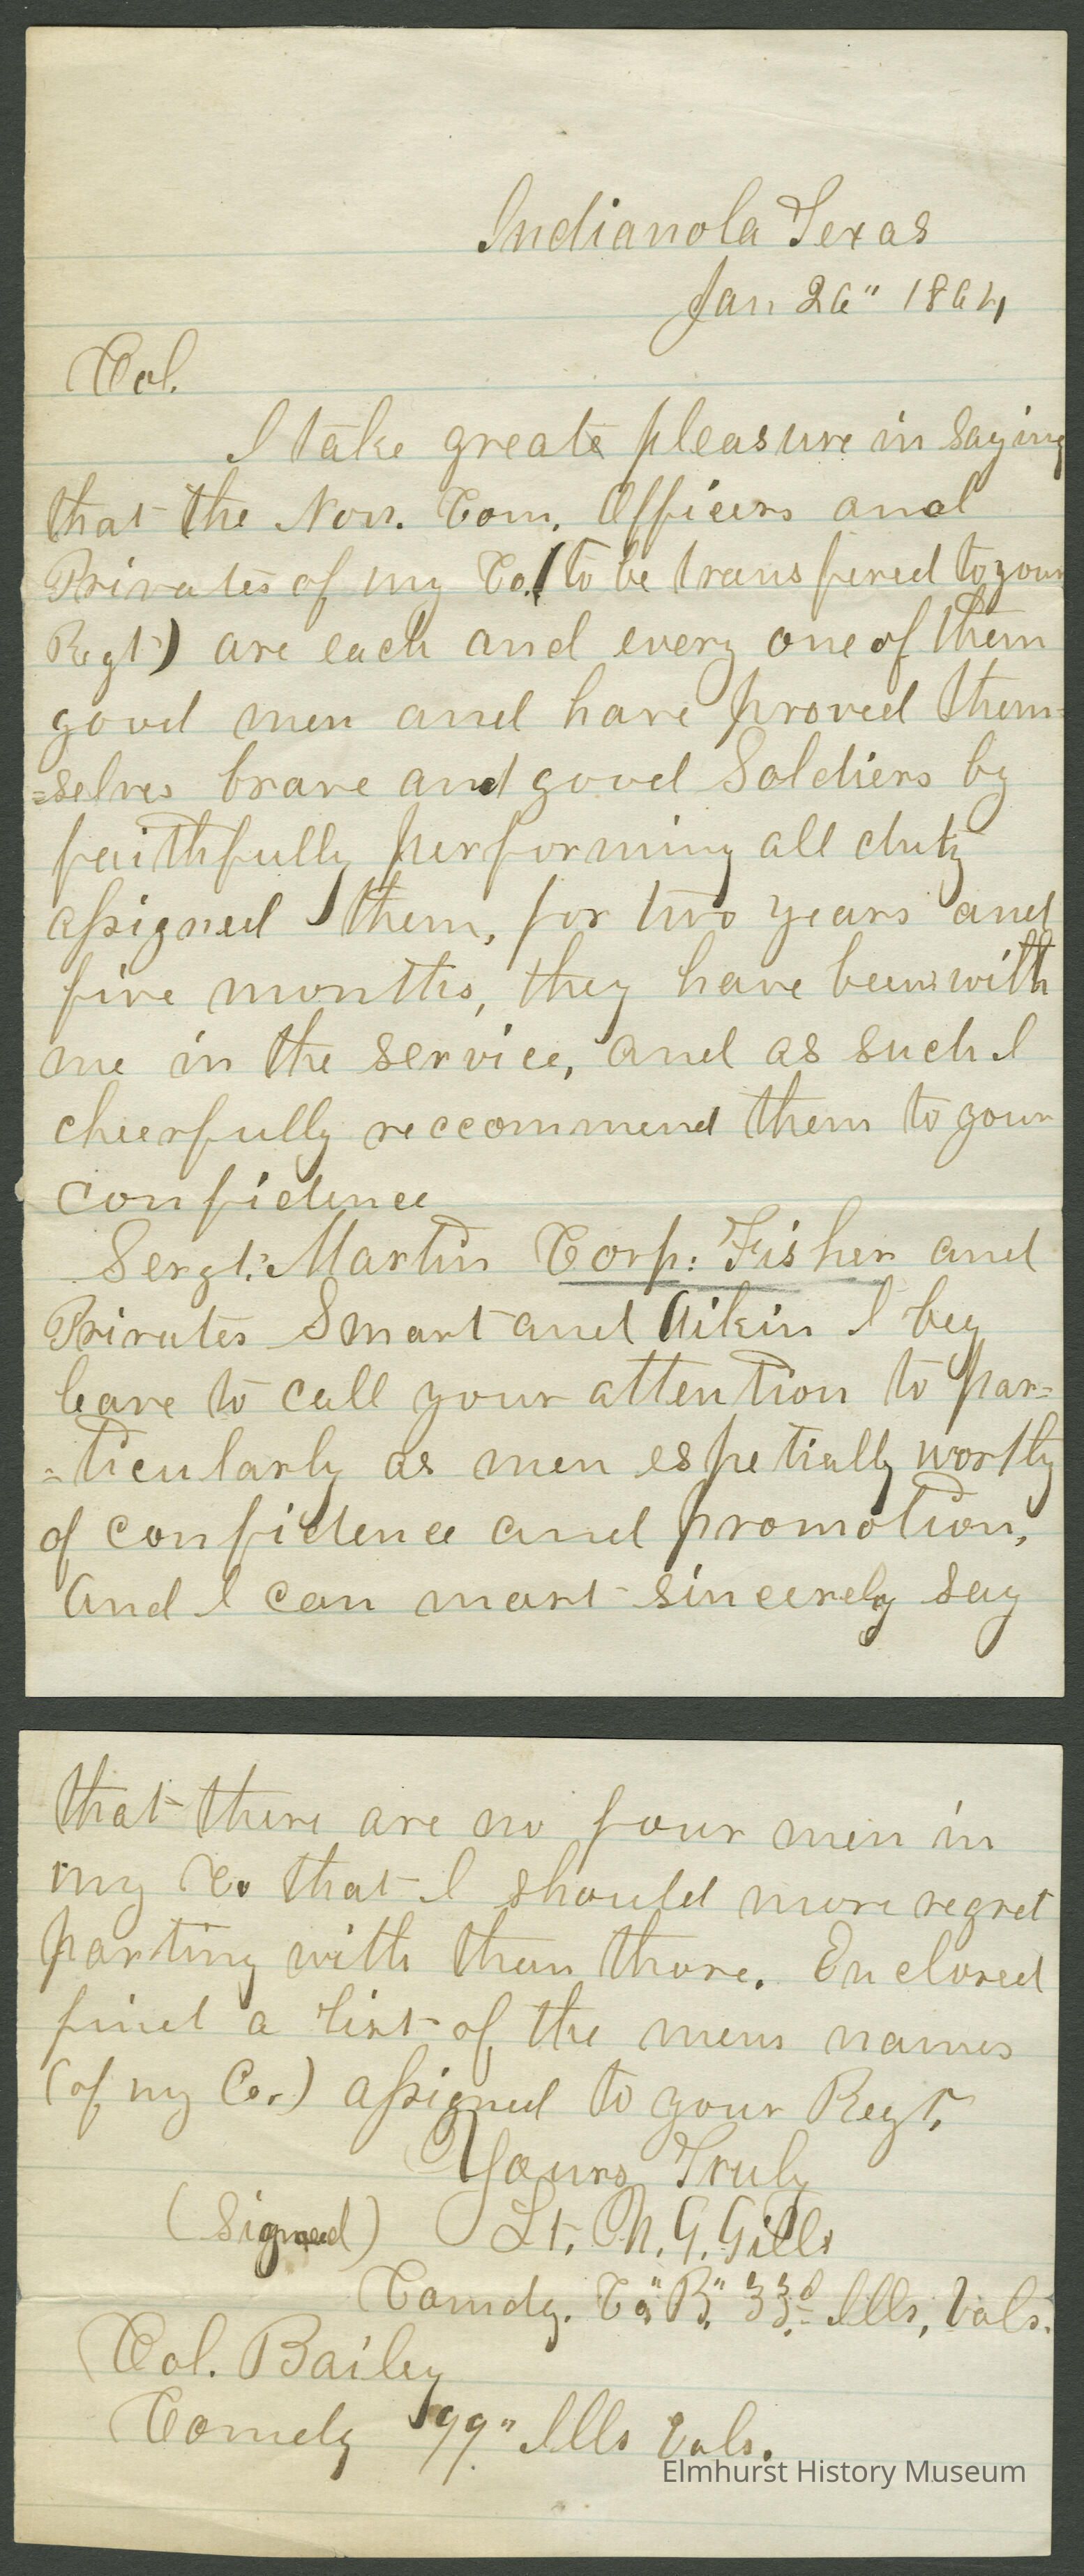 Indianola Texas
Jan 26" 1864
Col.
I take great pleasure in saying
that the Non. Com. Officers and
Privates of my Co. (to be transfered to your
Regt) are each and every one of them
good men and have proved them=
=selves brave and good Soldiers by
faithfully performing all duty
assigned them, for two years and
five months, they have been with
me in the service, and as such I
cheerfully reccommend them to your
confidence
Sergt. Martin Corp: Fisher and
Privates Smart and Aikin I beg
leave to call your attention to par=
=ticularly as men espetially worthy
of confidence and promotion,
And I can most sincerely say
that there are no four men in
my Co that I should more regret
parting with than those. Enclosed
find a list of the mens names
(of my Co.) assigned to your Regt.
Yours Truly
(Signed) Lt. N. G. Gills
Comdg. Co "B" 33d Ills, Vols.
Col. Bailey
Comdg 99" Ills Vols.
Elmhurst History Museum